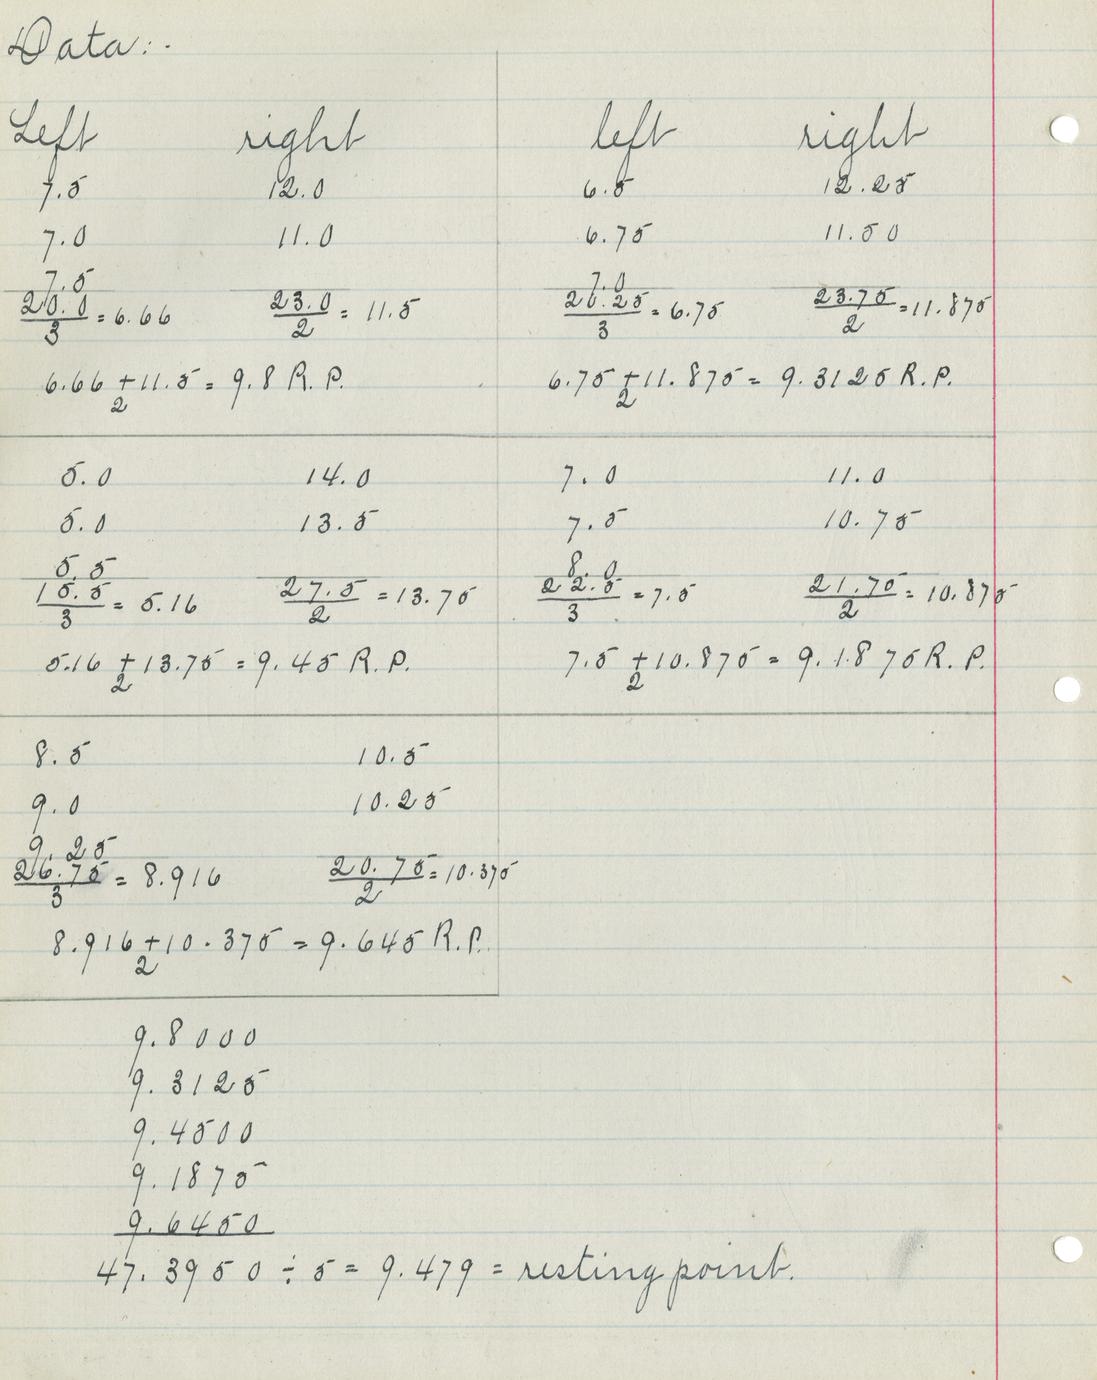 Data:.
Left right left right
7.5 12.0 6.5 12.25
7.0 11.0 6.75 11.50
7.5 7.0
20.0 = 6.66 23.0 = 11.5 20.25 = 6.75 23.75 = 11.875
3 2 3 2
6.66 + 11.5 = 9.8 R.P. 6.75 + 11.875 = 9.3125 R.P.
2 2
5.0 14.0 7.0 11.0
5.0 13.5 7.5 10.75
5.5 8.0
15.5 = 5.16 27.5 = 13.75 22.5 = 7.5 21.75 = 10.875
3 2 3 2
5.16 + 13.75 = 9.45 R.P. 7.5 + 10.875 = 9.1875 R.P.
2 2
8.5 10.5
9.0 10.25
9.25
26.75 = 8.916 20.75 = 10.375
3 2
8.916 + 10.375 = 9.645 R.P.
2
9.8000
9.3125
9.4500
9.1875
9.6450
47.3950 ÷ 5 = 9.479 = resting point.